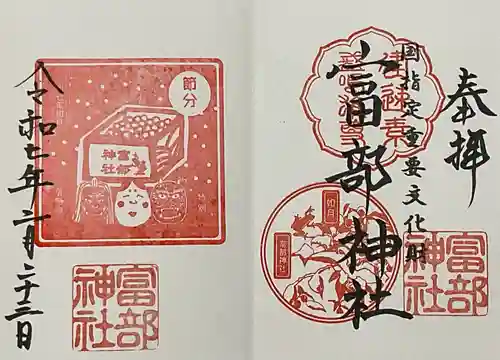 奉拝
国指定重要文化財
富部神社
如月
富部神社
富部神社
節分
富部神社
令和七年二月二十三日
富部神社